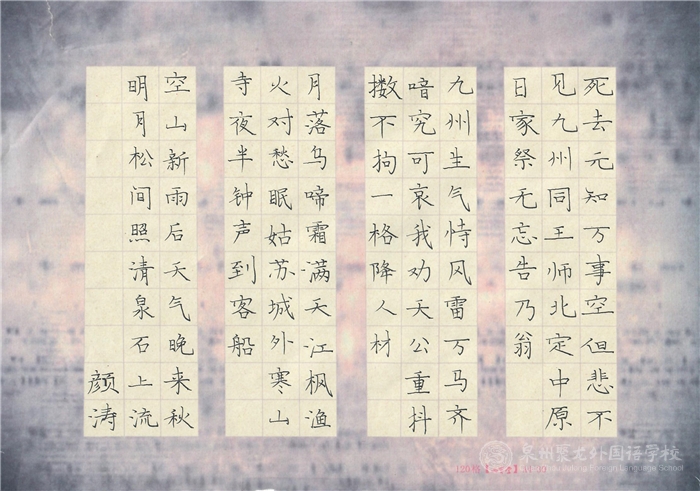 死去元知万事空但悲不
见九州同王师北定中原
日家祭无忘告乃翁
九州生气恃风雷万马齐
喑究可哀我劝天公重抖
擞不拘一格降人材
月落乌啼霜满天江枫渔
火对愁眠姑苏城外寒山
寺夜半钟声到客船
空山新雨后天气晚来秋
明月松间照清泉石上流
颜涛
泉州聚龙外国语学校
Foreign Language School